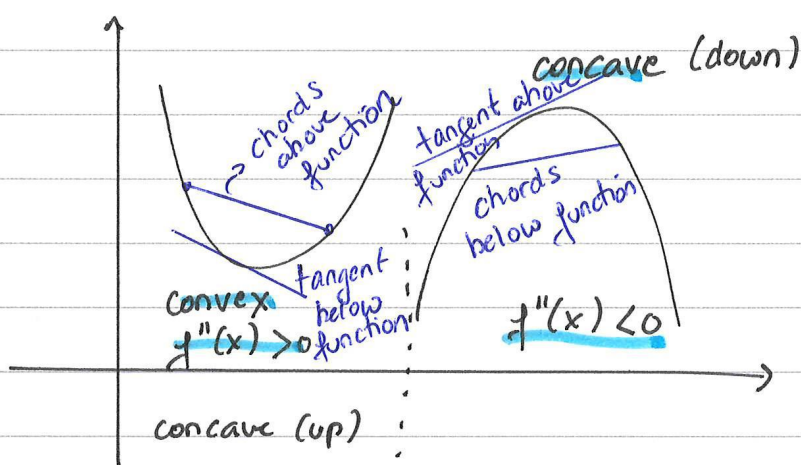 concave (down)
chords
above
function
tangent above
function
chords
below function
tangent
below
function
convex
f''(x) >0
f''(x) <0
concave (up)